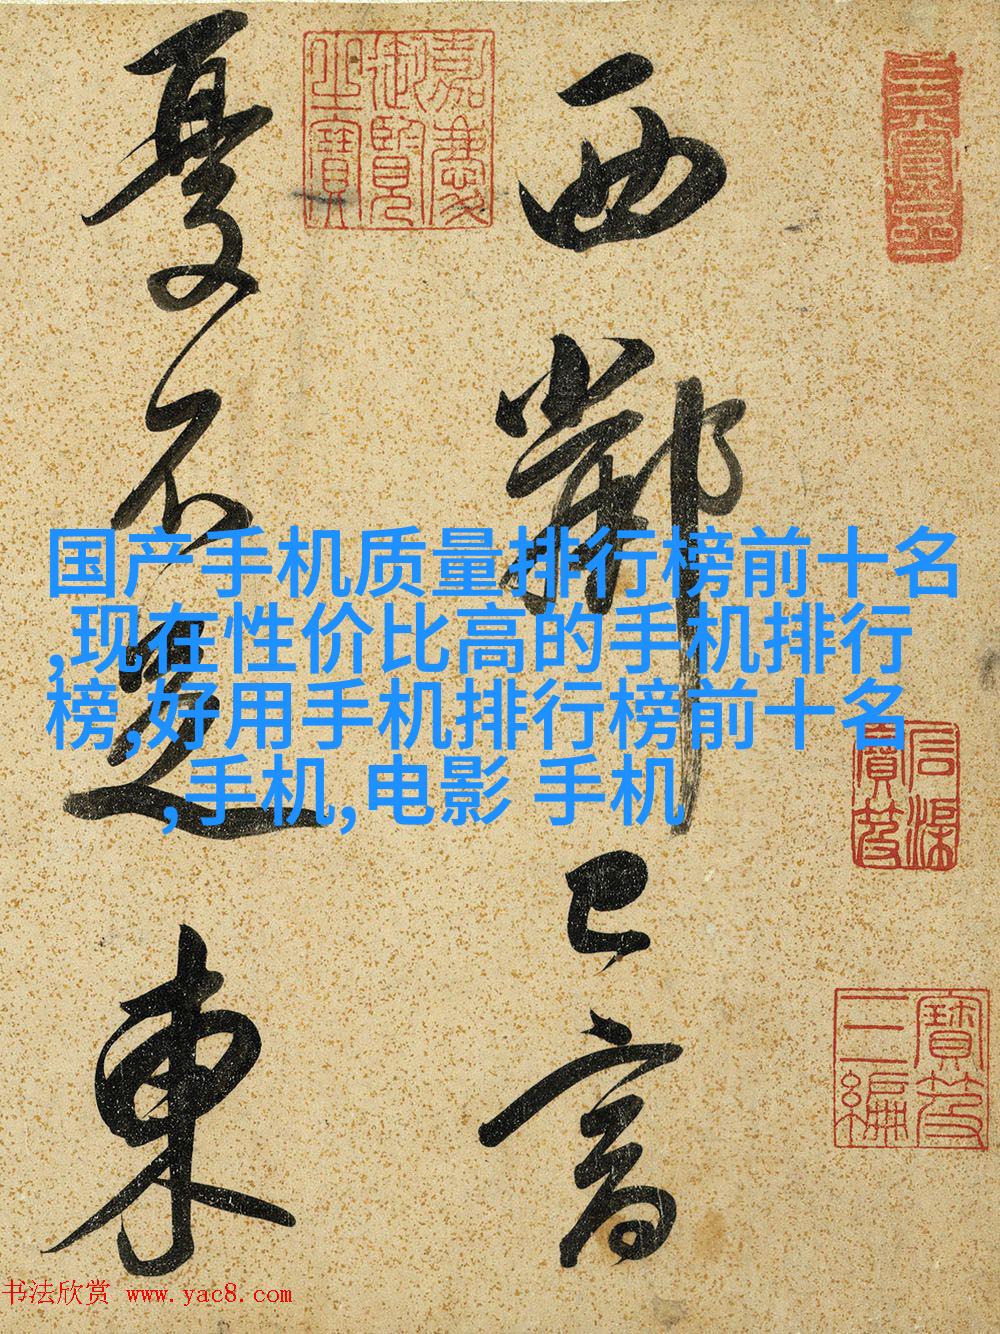 西鄰已富
憂不選東
嘉慶御覽之寶
寶笈三編
国产手机质量排行榜前十名
,现在性价比高的手机排行
榜,好用手机排行榜前十名
,手机,电影 手机
书法欣赏 www.yac8.com